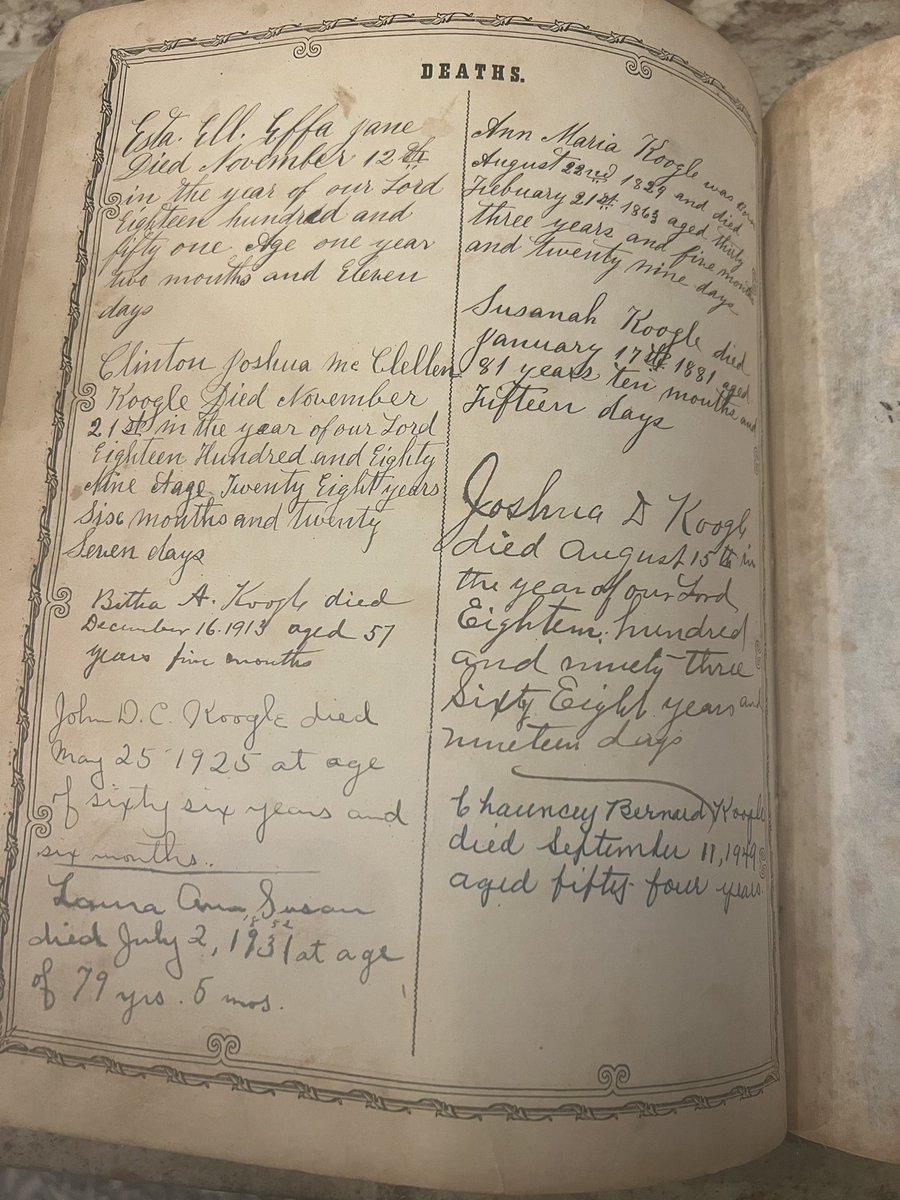 DEATHS.
Esta. Ell. Effa Jane
Died November 12th
in the year of our Lord
Eighteen hundred and
fifty one Age one year
two months and Eleven
days
Clinton Joshua Mc Clellen
Koogle Died November
21st in the year of our Lord
Eighteen Hundred and Eighty
Nine Aage Twenty Eight years
Six months and twenty
Seven days
A. Koogle died
December 16. 1913 aged 57
years five months
John D. C. Koogle died
May 25 1925 at age
of sixty six years and
six months.
Laura Ann Susan
1852
died July 2, 1931 at age
of 79 yrs. 5 mos.
Ann Maria Koogle was Born
August 22nd 1829 and died
Febuary 21st 1863 aged thirty
three years and five months
and twenty nine days
Susanah Koogle died
January 17th 1881 aged
81 years ten months and
Fifteen days
Joshua D Koogle
died August 15th in
the year of our Lord
Eighteen. hundred
and ninety-three
Sixty Eight years and
nineteen days
Chauncey Bernard Koogle
died September 11, 1949
aged fifty four years.